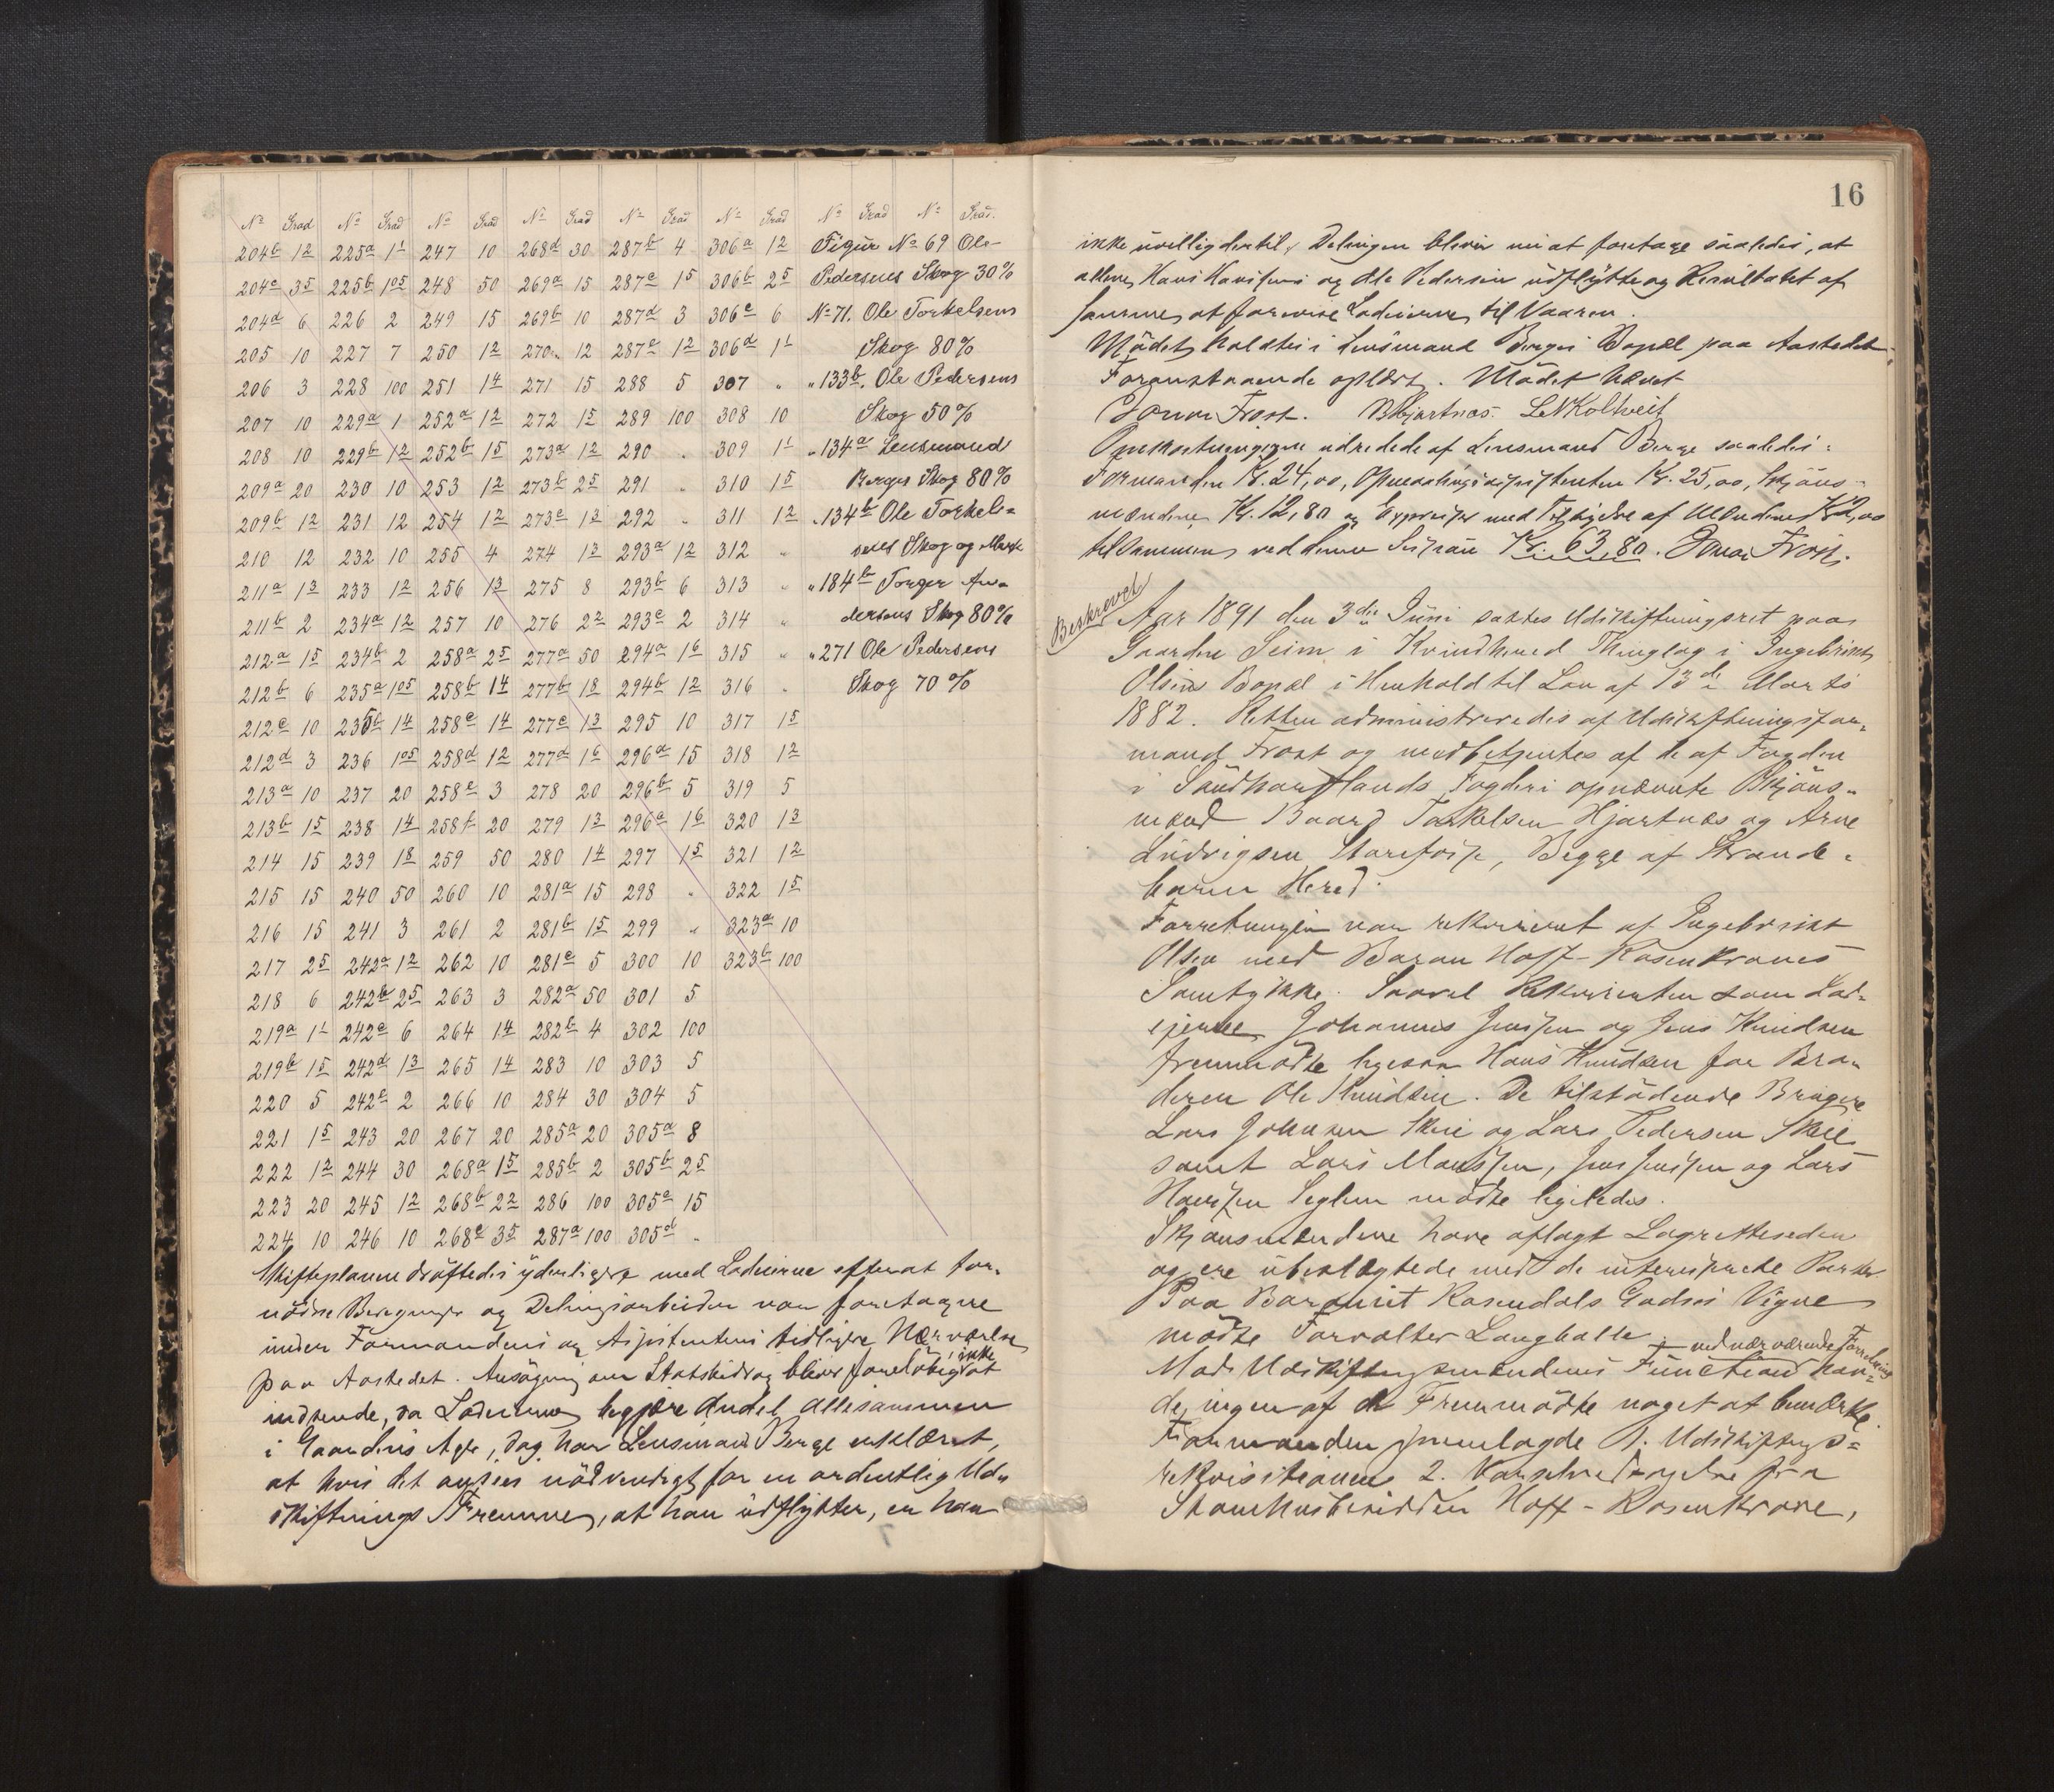 No Grad No Grad No Grad No Grad No Grad No Grad No Grad No Grad.
204b 12 225a 11 247 10 268d 30 287b 4 306a 12 Figur No 69 Ole
204c 35 225b 105 248 50 269a 15 287c 15 306b 25 Pedersens Skog 30%
204d 6 226 2 249 15 269b 10 287d 3 306c 6 No 71. Ole Torkelsens
205 10 227 7 250 12 270 12 287e 12 306d 11 Skog 80%
206 3 228 100 251 14 271 15 288 5 307 " " 133b. Ole Pedersens
207 10 229a 1 252a 12 272 15 289 100 308 10 Skog 50%
208 10 229b 12 252b 15 273a 12 290 " 309 11 " 134a Lensmand
209a 20 230 10 253 12 273b 25 291 " 310 15 Berges Skog 80%
209b 12 231 12 254 12 273c 13 292 " 311 12 " 134b Ole Torkel-
210 12 232 10 255 4 274 13 293a 12 312 " sens Skog og Mark
211a 13 233 12 256 13 275 8 293b 6 313 " " 184b Torger An-
211b 2 234a 12 257 10 276 22 293c 2 314 " dersens Skog 80%
212a 15 234b 2 258a 25 277a 50 294a 16 315 " " 271 Ole Pedersens
212b 6 235a 105 258b 14 277b 18 294b 12 316 " Skog 70%
212c 10 235b 14 258c 14 277c 13 295 10 317 15
212d 3 236 105 258d 12 277d 16 296a 15 318 12
213a 10 237 20 258e 3 278 20 296b 5 319 5
213b 15 238 14 258f 20 279 13 296a 16 320 13
214 15 239 18 259 50 280 14 297 15 321 12
215 15 240 50 260 10 281a 15 298 " 322 15
216 15 241 3 261 2 281b 15 299 " 323a 10
217 25 242a 12 262 10 281c 5 300 10 323b 100
218 6 242b 25 263 3 282a 50 301 5
219a 11 242c 6 264 14 282b 4 302 100
219b 15 242d 13 265 14 283 10 303 5
220 5 242e 2 266 10 284 30 304 5
221 15 243 20 267 20 285a 20 305a 8
222 12 244 30 268a 15 285b 2 305b 25
223 20 245 12 268b 22 286 100 305c 15
224 10 246 10 268c 35 287a 100 305d "
Skifteplanen dröftedes yderligere med Lodeierne efterat for-
nödne Beregninger og Delingsarbeider var foretagne
under Formandens og Assistentens tidligere Nærværelse
paa Aastedet. Ansögning om Statsbidrag bliver foreløbig ikke at
indsende, da Lodeierne begjære Andel allesammen
i Gaardens Ager, dog har Lensmand Berge erklæret,
at hvis det ansees nödvendigt for en ordentlig Ud-
skiftnings Fremme, at han udflytter, er han
16
ikke uvillig dertil. Delingen bliver nu at foretage saaledes, at
alene Hans Hansens og Ole Pedersen udflytte og Resultatet af
samme at forevise Lodeierne til Vaaren.
Mödet holdtes i Lensmand Berges Bopæl paa Aastedet.
Foranstaaende oplæst. Mödet hævet
Jonas Frost. B Hjartnæs. L N Koltveit
Omkostningerne udredede af Lensmand Berge saaledes:
Formanden Kr. 24,00, Opmaalingsassistenten Kr. 25,00, Skjöns-
mændene Kr. 12,80 og Opvarter med Tilsigelse af Mændene Kr 2,00
tilsammen ved denne Session Kr. 63,80. Jonas Frost.
Beskrevet
Aar 1891 den 3die Juni sattes Udskiftningsret paa
Gaarden Seim i Kvindherred Thinglag i Ingebrikt
Olsens Bopæl i Henhold til Lov af 13de Marts
1882. Retten administreredes af Udskiftningsfor-
mand Frost og medbetjentes af de af Fogden
i Söndhordlands Fogderi opnævnte Skjöns-
mænd Baard Torkelsen Hjartnæs og Arne
Ludvigsen, Begge af Strande-
barm Herred.
Forretningen var rekvireret af Ingebrikt
Olsen med Baron Hoff-Rosenkrones
Samtykke. Saavel Rekvirenten som Lod-
eierne Johannes Jensen og Jens Knudsen
fremmödte ligesom Hans Knudsen for Bro-
deren Ole Knudsen. De tilstödende Brugere
Lars Johnsen Skeie og Lars Pedersen Skeie
samt Lars Monsen, Jens Jensen og Lars
Hansen Seglem mödte ligeledes.
Skjönsmændene have aflagt Lagretteseden
og ere ubeslægtede med de interesserede Parter
Paa Baroniet Rosendals Godses Vegne
mödte Forvalter Langballe.
Mod Udskiftningsmændenes Function ved nærværende Forretning hav-
de ingen af de Fremmödte noget at bemærke.
Formanden fremlagde 1. Udskiftnings-
rekvisitionen 2. Varselved fra
Stamhusbesidder Hoff-Rosenkrone,